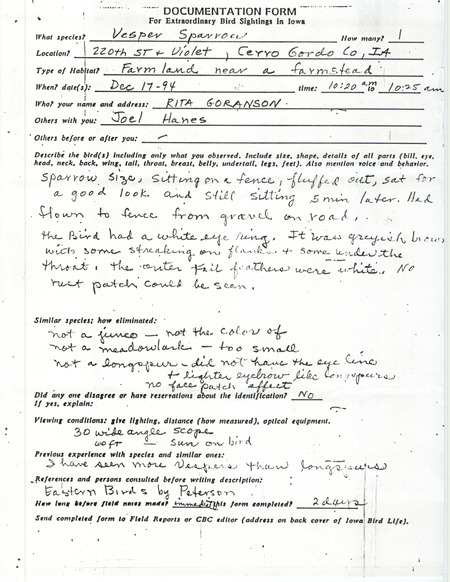 DOCUMENTATION FORM
For Extraordinary Bird Sightings in Iowa
What species? Vesper Sparrow How many? 1
Location? 220th ST & Violet, Cerro Gordo Co, IA
Type of Habitat? Farmland near a farmstead
When? date(s): Dec 17-94 time: 10:20 am to 10:25 am
Who? your name and address: RITA GORANSON
Others with you: Joel Hanes
Others before or after you:
Describe the bird(s) including only what you observed. Include size, shape, details of all parts (bill, eye,
head, neck, back, wing, tail, throat, breast, belly, undertail, legs, feet). Also mention voice and behavior.
sparrow size, sitting on a fence, fluffed out, sat for
a good look and still sitting 5 min later. Had
flown to fence from gravel on road.
the Bird had a white eye ring. It was greyish brown
with some streaking on flanks & some under the
throat. the outer tail feathers were white. No
rust patch could be seen.
Similar species; how eliminated:
not a junco — not the color of
not a meadowlark — too small
not a longspur - did not have the eye line
& lighter eyebrow like longspurs
no face patch effect
Did any one disagree or have reservations about the identification? No
If yes, explain:
Viewing conditions: give lighting, distance (how measured), optical equipment.
30 wide angle scope
60ft — sun on bird
Previous experience with species and similar ones:
I have seen more Vespers than longspurs
References and persons consulted before writing description:
Eastern Birds by Peterson
How long before field notes made? immediate this form completed? 2 days
Send completed form to Field Reports or CBC editor (address on back cover of Iowa Bird Life).